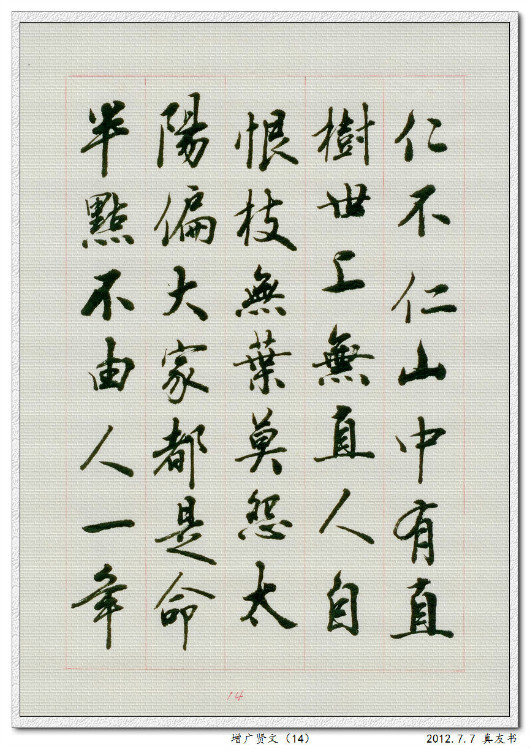 仁不仁山中有直
樹世上無直人自
恨枝無葉莫怨太
陽偏大家都是命
半點不由人一年
14
增广贤文（14）
2012.7.7 真友书